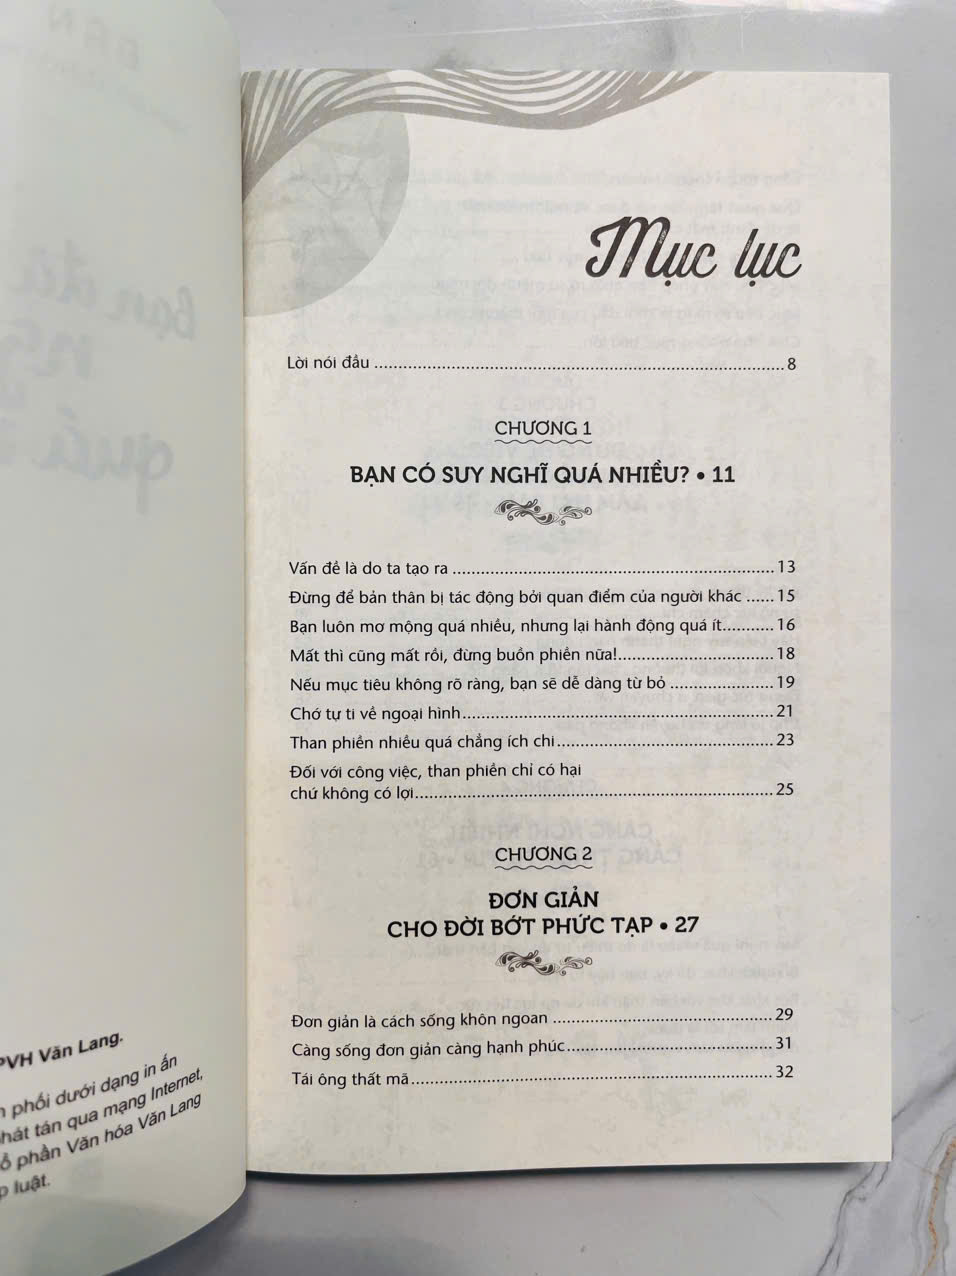 BẠN
bạn đã
quá
PVH Văn Lang.
phối dưới dạng in ấn
phát tán qua mạng Internet,
cổ phần Văn hóa Văn Lang
luật.
Mục lục
Lời nói đầu ........................................................................................ 8
CHƯƠNG 1
BẠN CÓ SUY NGHĨ QUÁ NHIỀU? • 11
Vấn đề là do ta tạo ra .................................................................... 13
Đừng để bản thân bị tác động bởi quan điểm của người khác ...... 15
Bạn luôn mơ mộng quá nhiều, nhưng lại hành động quá ít........... 16
Mất thì cũng mất rồi, đừng buồn phiền nữa!................................. 18
Nếu mục tiêu không rõ ràng, bạn sẽ dễ dàng từ bỏ ...................... 19
Chớ tự ti về ngoại hình.................................................................. 21
Than phiền nhiều quá chẳng ích chi.............................................. 23
Đối với công việc, than phiền chỉ có hại
chứ không có lợi............................................................................ 25
CHƯƠNG 2
ĐƠN GIẢN
CHO ĐỜI BỚT PHỨC TẠP • 27
Đơn giản là cách sống khôn ngoan ............................................... 29
Càng sống đơn giản càng hạnh phúc............................................ 31
Tái ông thất mã.............................................................................. 32